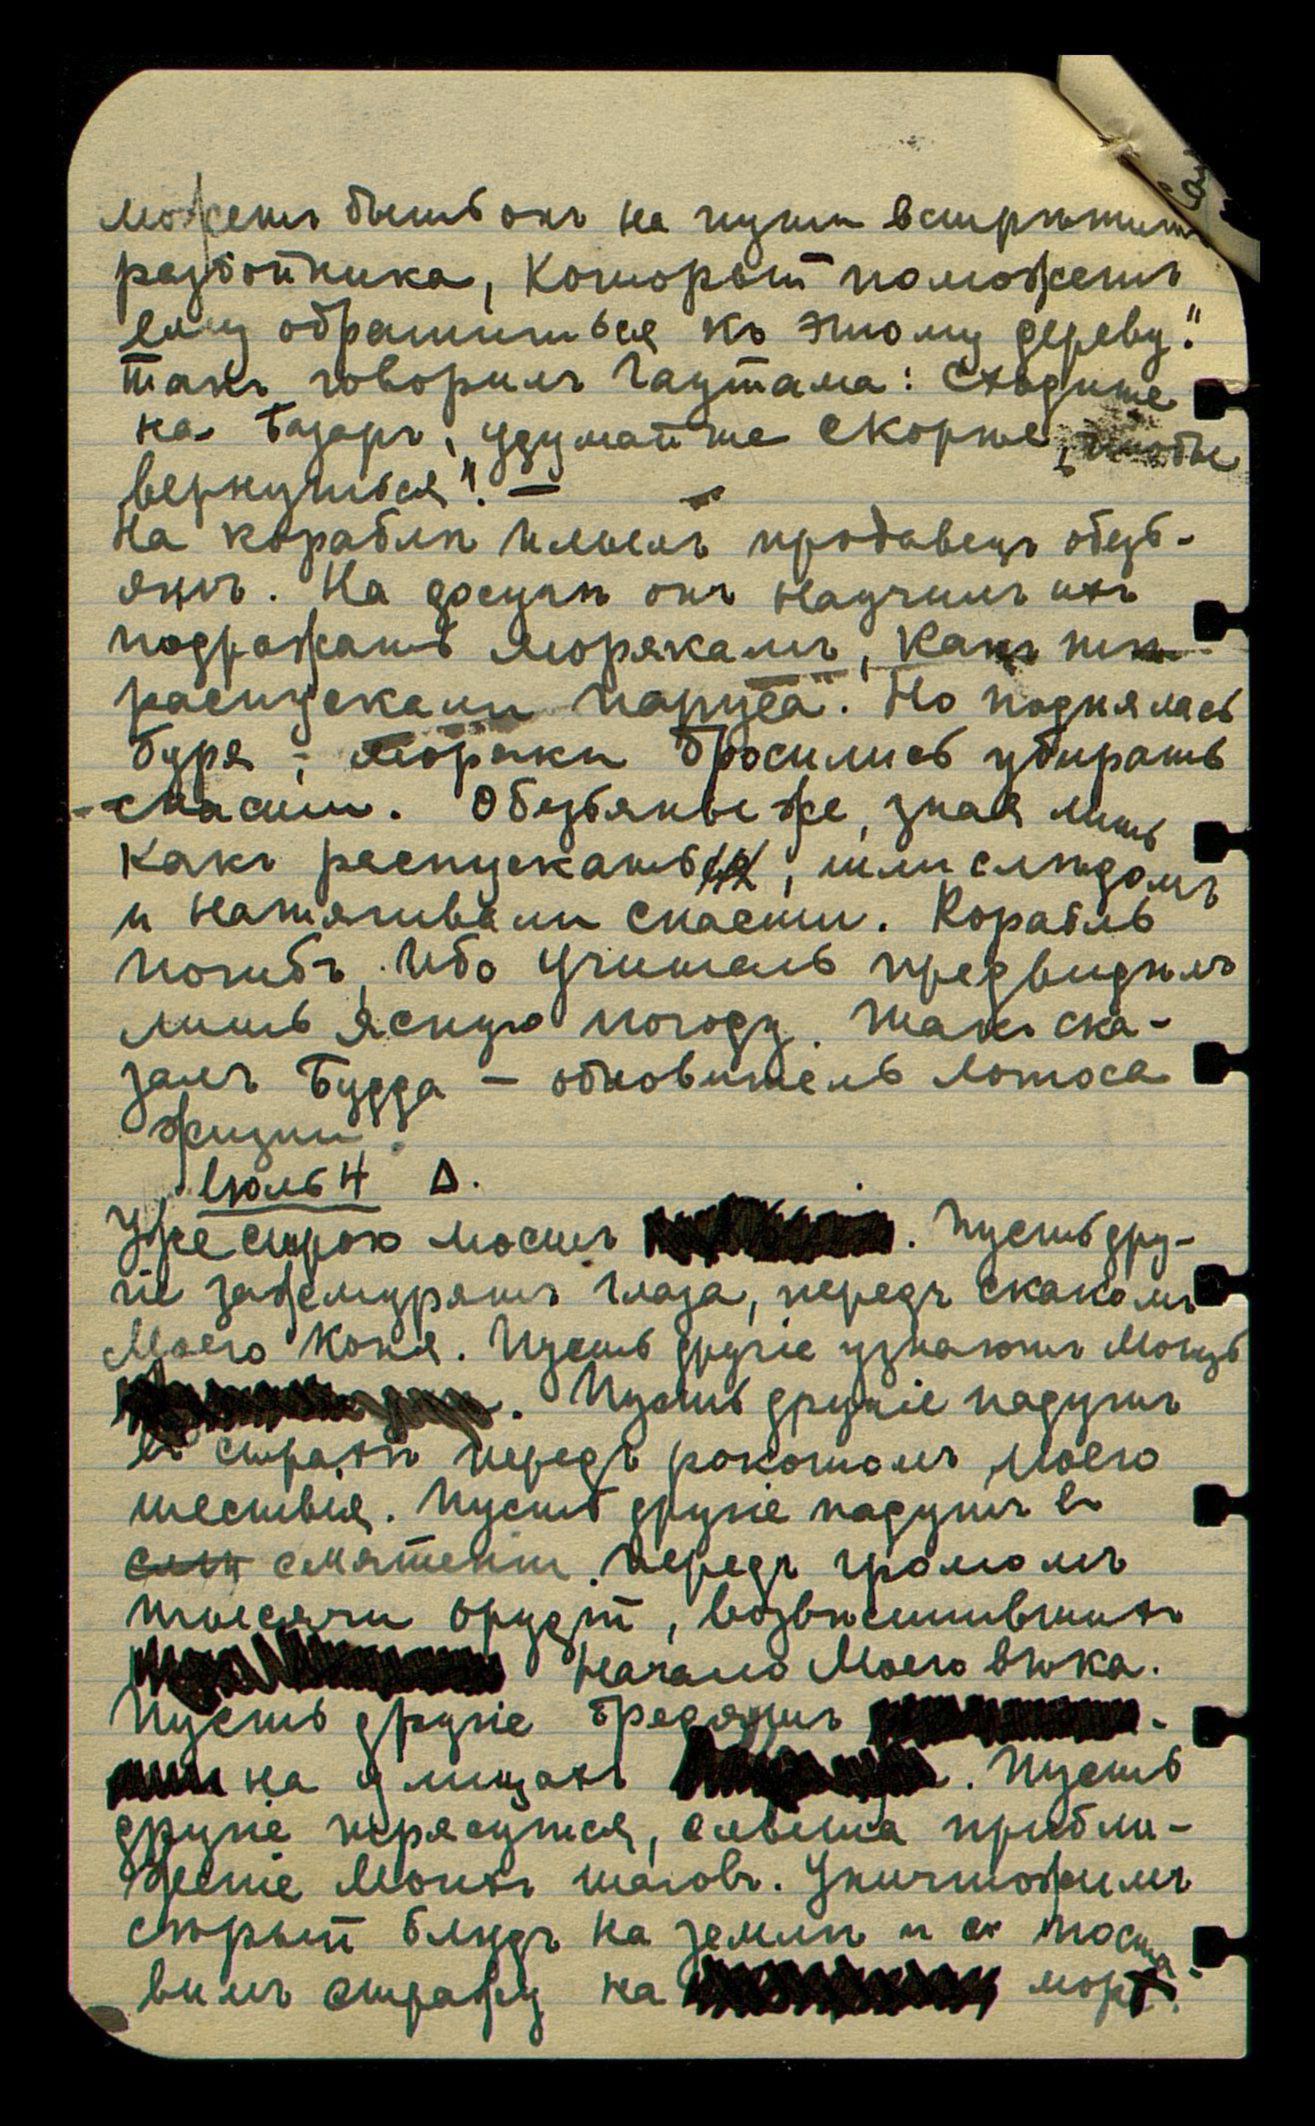 можетъ быть онъ на пути встрѣтитъ
разбойника, который поможетъ
ему обратиться къ этому дереву."
Такъ говорилъ Гаутама: Сходите
на базаръ, удумайте скорѣе, чтобы
вернуться". —
На кораблѣ плылъ продавецъ обезь-
янъ. На досугѣ онъ научилъ ихъ
подражать морякамъ, какъ тѣ
распускали паруса. Но поднялась
буря; моряки бросились убирать
снасти. Обезьяны же, зная лишь
какъ распускать, шли слѣдомъ
и натягивали снасти. Корабль
погибъ, ибо учитель предвидѣлъ
лишь ясную погоду. Такъ ска-
залъ Будда – обновитель Лотоса
жизни.
Іюль 4 Δ.
Уже строю мостъ . Пусть дру-
гіе зажмурятъ глаза, передъ скакомъ
Моего Коня. Пусть другіе узнаютъ Мощь
. Пусть другіе падутъ
въ страхѣ передъ рокотомъ Моего
шествія. Пусть другіе падутъ въ
смятеніи передъ громомъ
тысячи орудій, возвѣстившихъ
начало Моего вѣка.
Пусть другіе бредятъ
на улицахъ . Пусть
другіе трясутся, слыша прибли-
женіе Моихъ шаговъ. Уничтожимъ
старый блудъ на землѣ и поста-
вимъ стражу на морѣ.